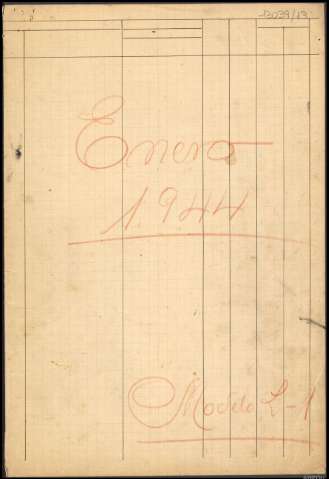 13039/13
Enero
1944
Modelo L-1